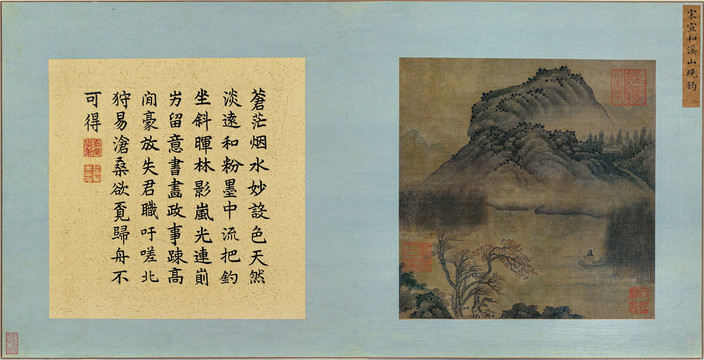 宋宣和溪山晚釣
蒼茫烟水妙設色天然
淡遠和粉墨中流把釣
坐斜暉林影嵐光連崱
屴留意書畫政事踈高
閒豪放失君職吁嗟北
狩易滄桑欲覔歸舟不
可得